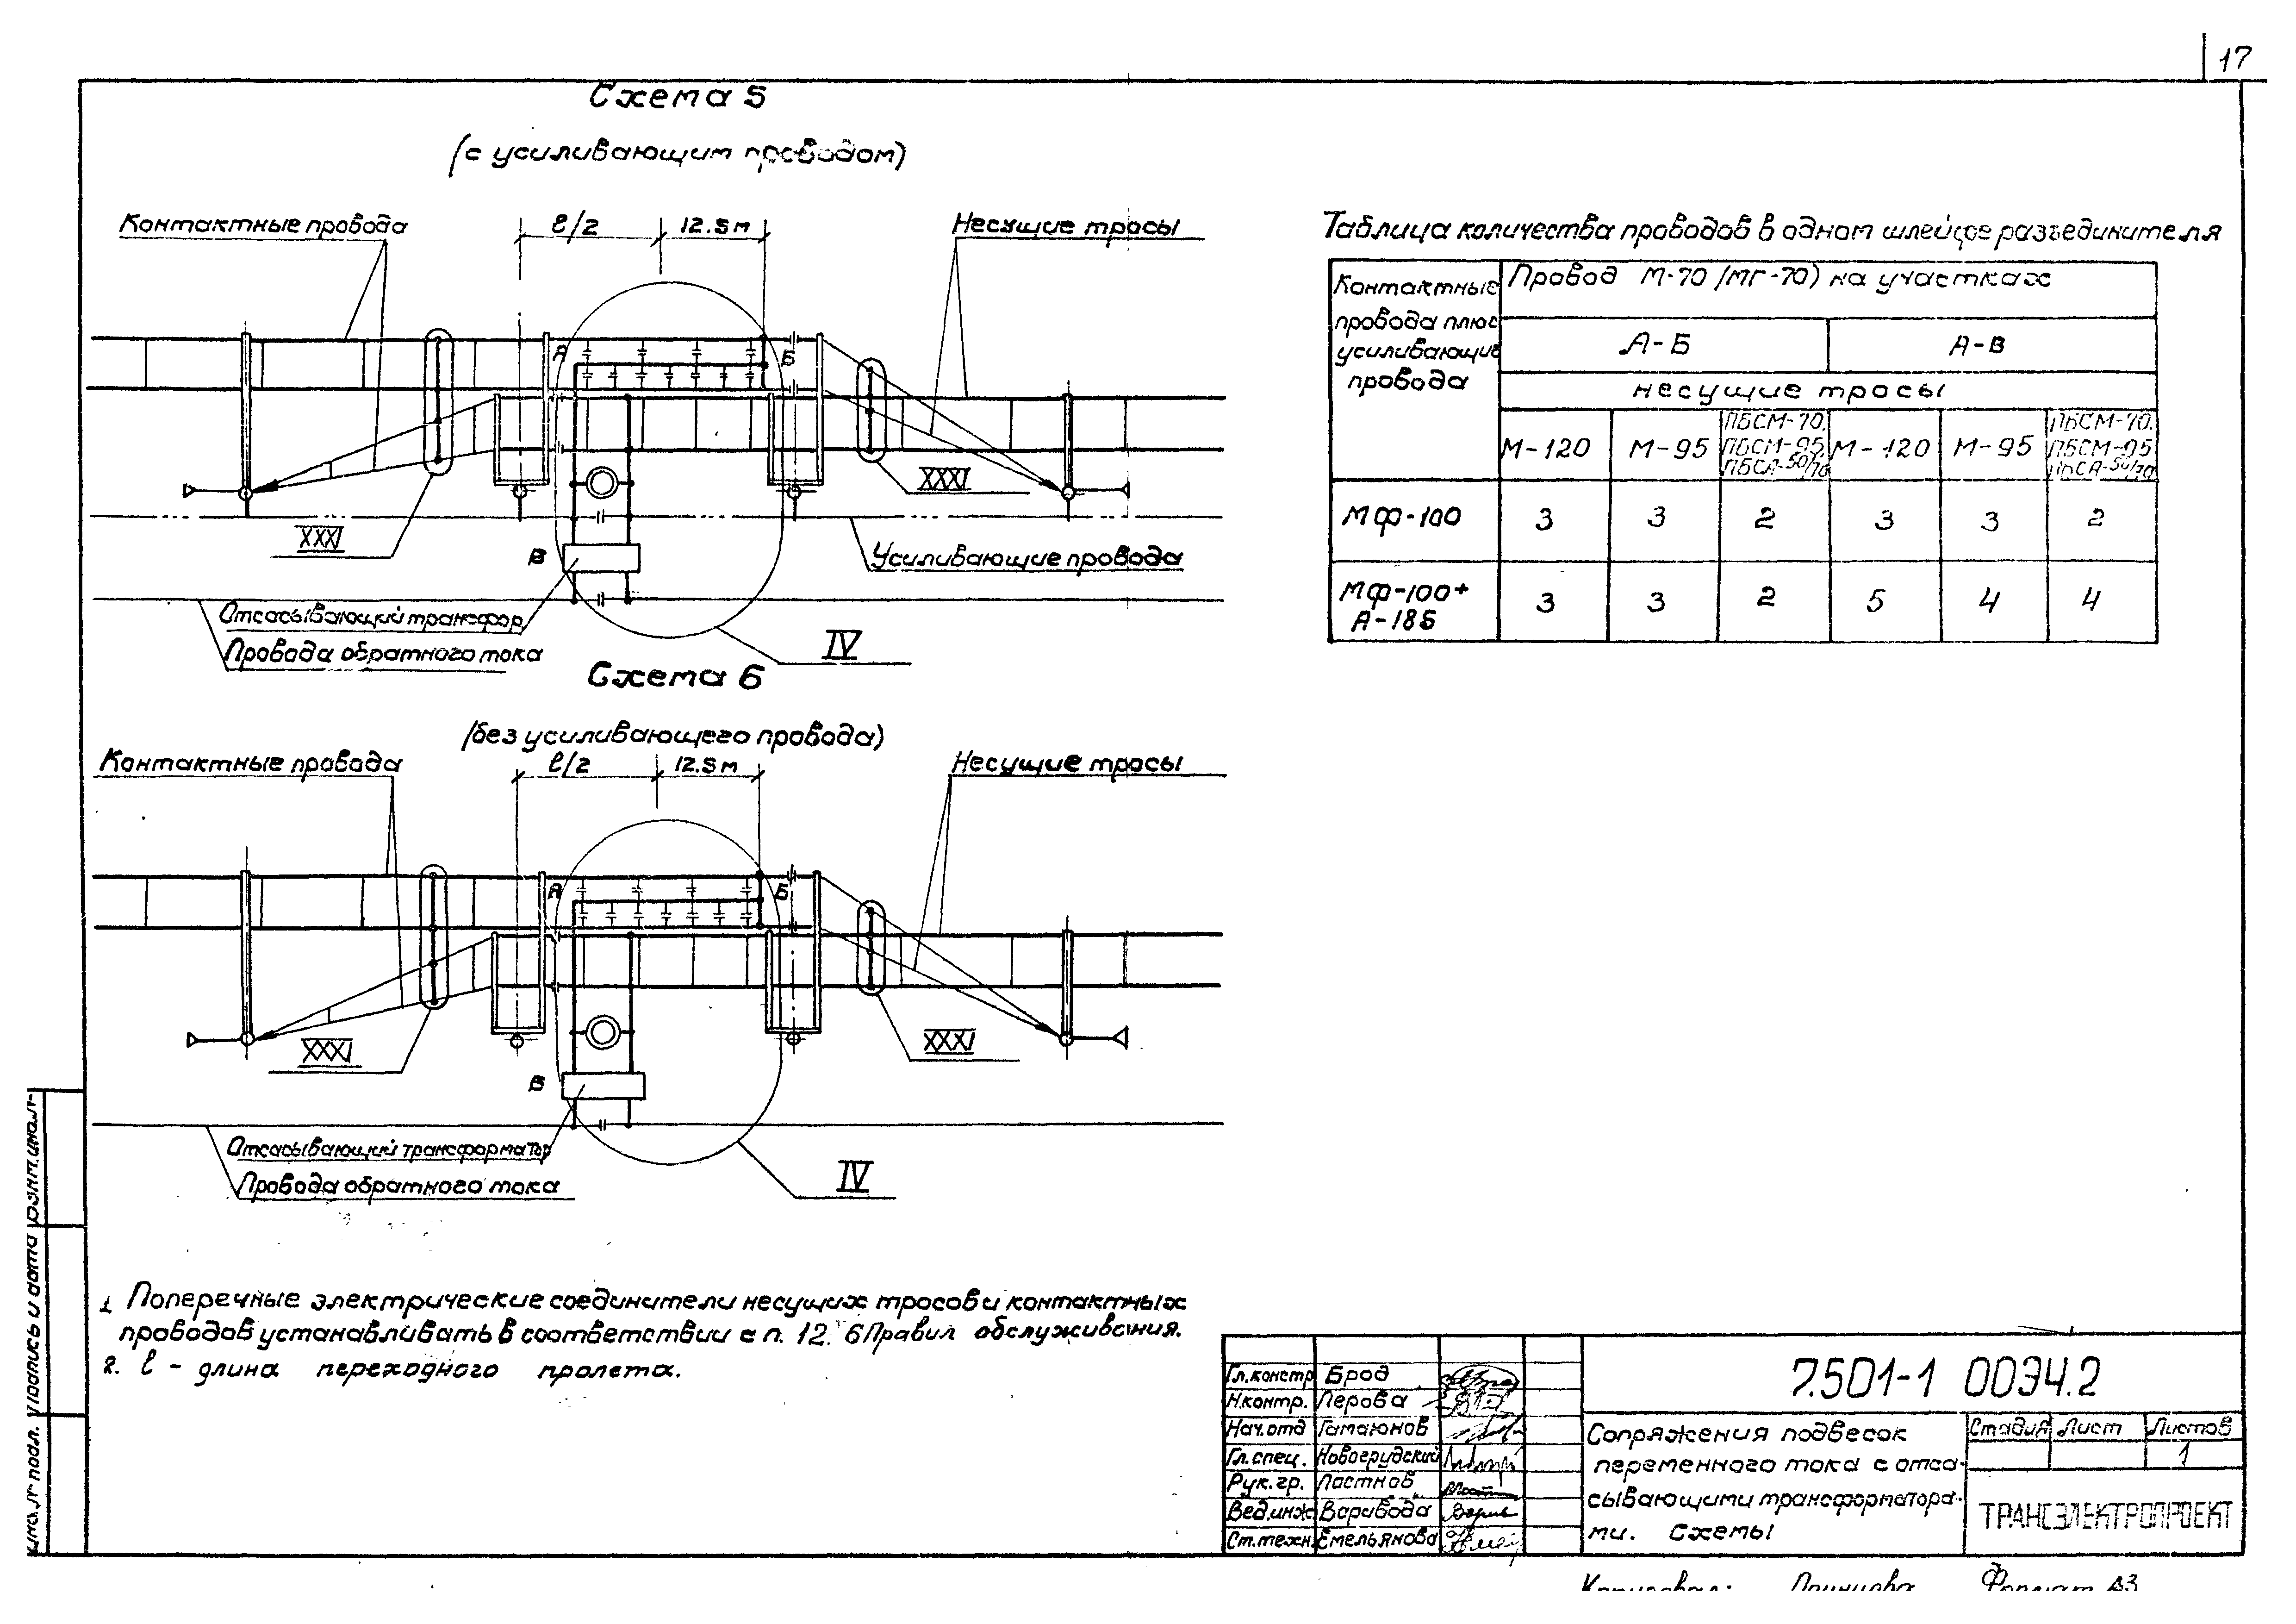 17
Схема 5
(с усиливающим проводом)
Контактные провода
l/2
12.5м
Несущие тросы
А
Б
XXXI
XXXI
В
Усиливающие провода
Отсасывающий трансфор.
Провода обратного тока
IV
Схема 6
(без усиливающего провода)
Контактные провода
l/2
12.5м
Несущие тросы
А
Б
XXXI
XXXI
В
Отсасывающий трансформатор
Провода обратного тока
IV
Таблица количества проводов в одном шлейфе разъединителя
Контактные
провода плюс
усиливающие
провода
Провод М-70 (МГ-70) на участках
А-Б
А-В
несущие тросы
М-120
М-95
ПБСМ-70,
ПБСМ-95,
ПБСА-50/70
М-120
М-95
ПБСМ-70,
ПБСМ-95
ПБСА-50/70
МФ-100 3 3 2 3 3 2
МФ-100+
А-185
3 3 2 5 4 4
1. Поперечные электрические соединители несущих тросов и контактных
проводов устанавливать в соответствии с п. 12.6 Правил обслуживания.
2. l - длина переходного пролета.
Гл.констр Брод
Н.контр. Перова
Нач.отд Гамаюнов
Гл.спец. Новогрудский
Рук.гр. Ластнов
Вед.инж. Воривода
Ст.техн. Емельянова
7.501-1 00ЭЧ.2
Сопряжения подвесок
переменного тока с отса-
сывающими трансформатора-
ми. Схемы
Стадия Лист Листов
1
ТРАНСЭЛЕКТРОПРОЕКТ
Инв.№ подл. Подпись и дата Взам.инв.№
Копировал:
Формат А3